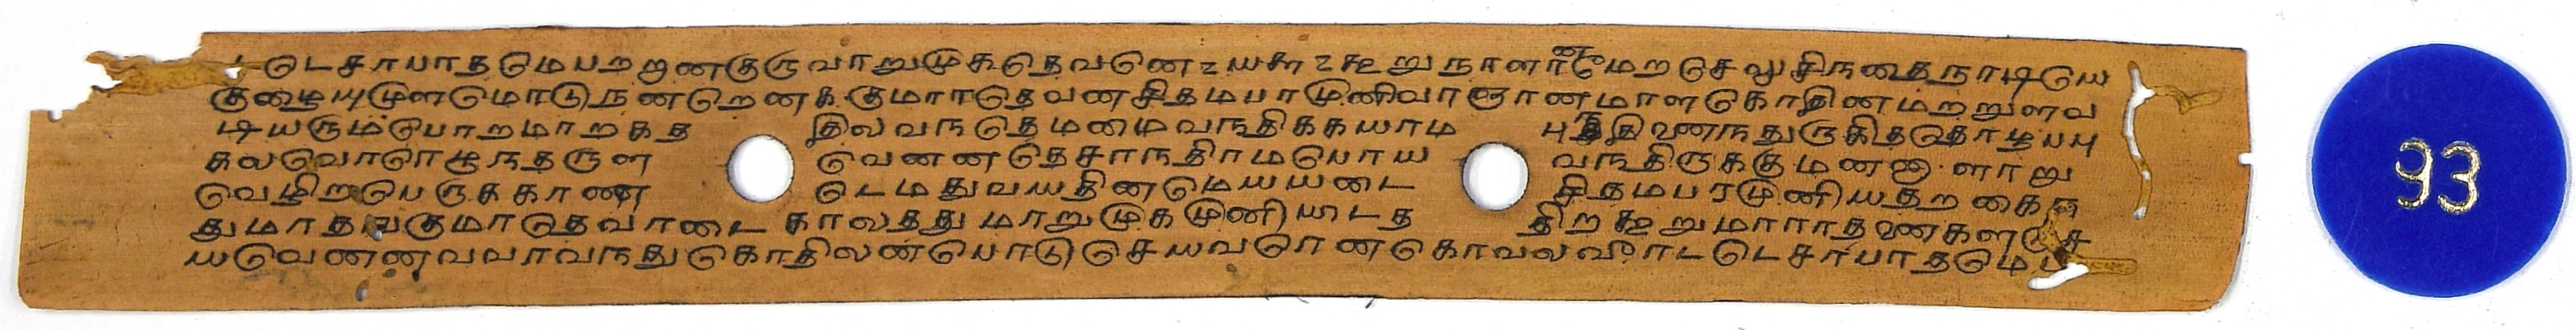 டெசரபாதமெபறறுணகுருவாறுமுகதெவனெ உயகூ உகூறுநானார்மெறசெலுசிநதைநாடியெ
குமையுமுளமொடுநணறெனக குமாரதெவனசிதமபரமுனிவரஞானமாளகொதினமறறுளவ
டியரும்பொறமாறகத திலவநதெமமைவநதிககயாம புநதிணைநதுருகிதொழபபு
கலவொரெழுநதருள வெனனதெசாநதிரமபொய வநதிருககுமணண ளாறு
வெழிறபெருககாண டெமதுவயதினமெயயடை சிதமபரமுனியதறகை
துமாதவகுமாரதெவரடை காலதது மாறுமுகமுனியடைத திறகூறுமாராதணைகளுச
யவெணணவவரவநதுகொதிலண்பொடுசெயவரெனகொவலவீரட டெசர்பாதமெப